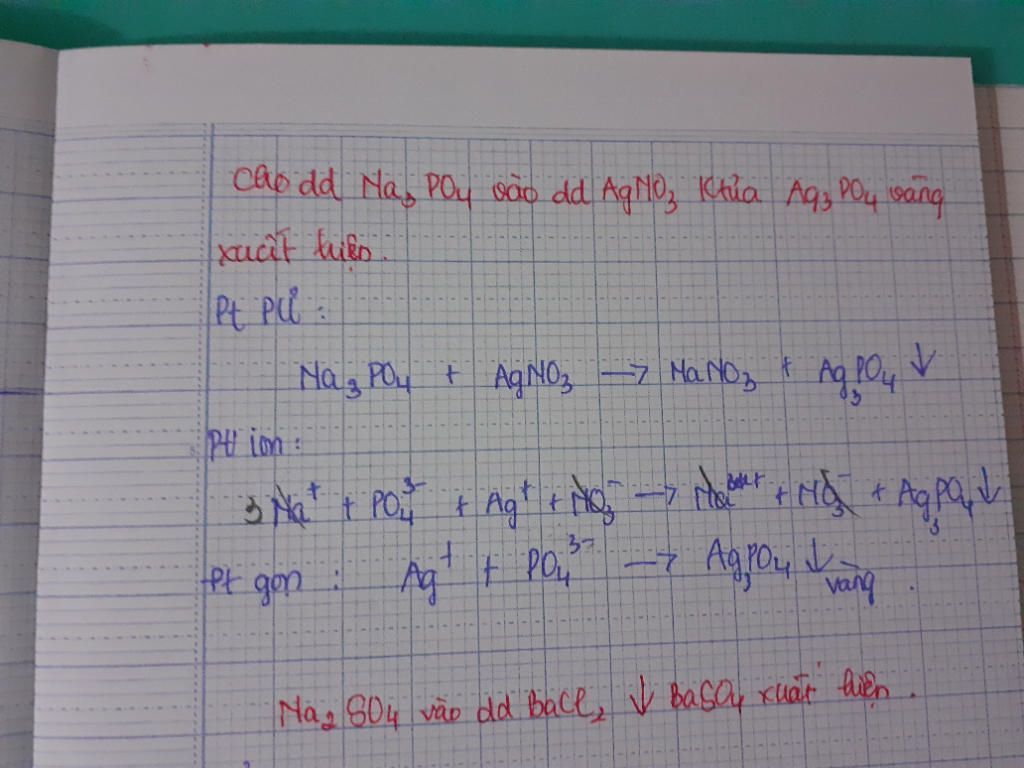 Cho dd Na₃PO₄ vào dd AgNO₃ tủa Ag₃PO₄ vàng
xuất hiện.
Pt PƯ :
Na₃PO₄ + AgNO₃ → NaNO₃ + Ag₃PO₄ ↓
Pt ion :
3Na⁺ + PO₄³⁻ + Ag⁺ + NO₃⁻ → Na⁺ + NO₃⁻ + Ag₃PO₄ ↓
Pt gọn : Ag⁺ + PO₄³⁻ → Ag₃PO₄ ↓ vàng .
Na₂SO₄ vào dd BaCl₂ ↓ BaSO₄ xuất hiện .